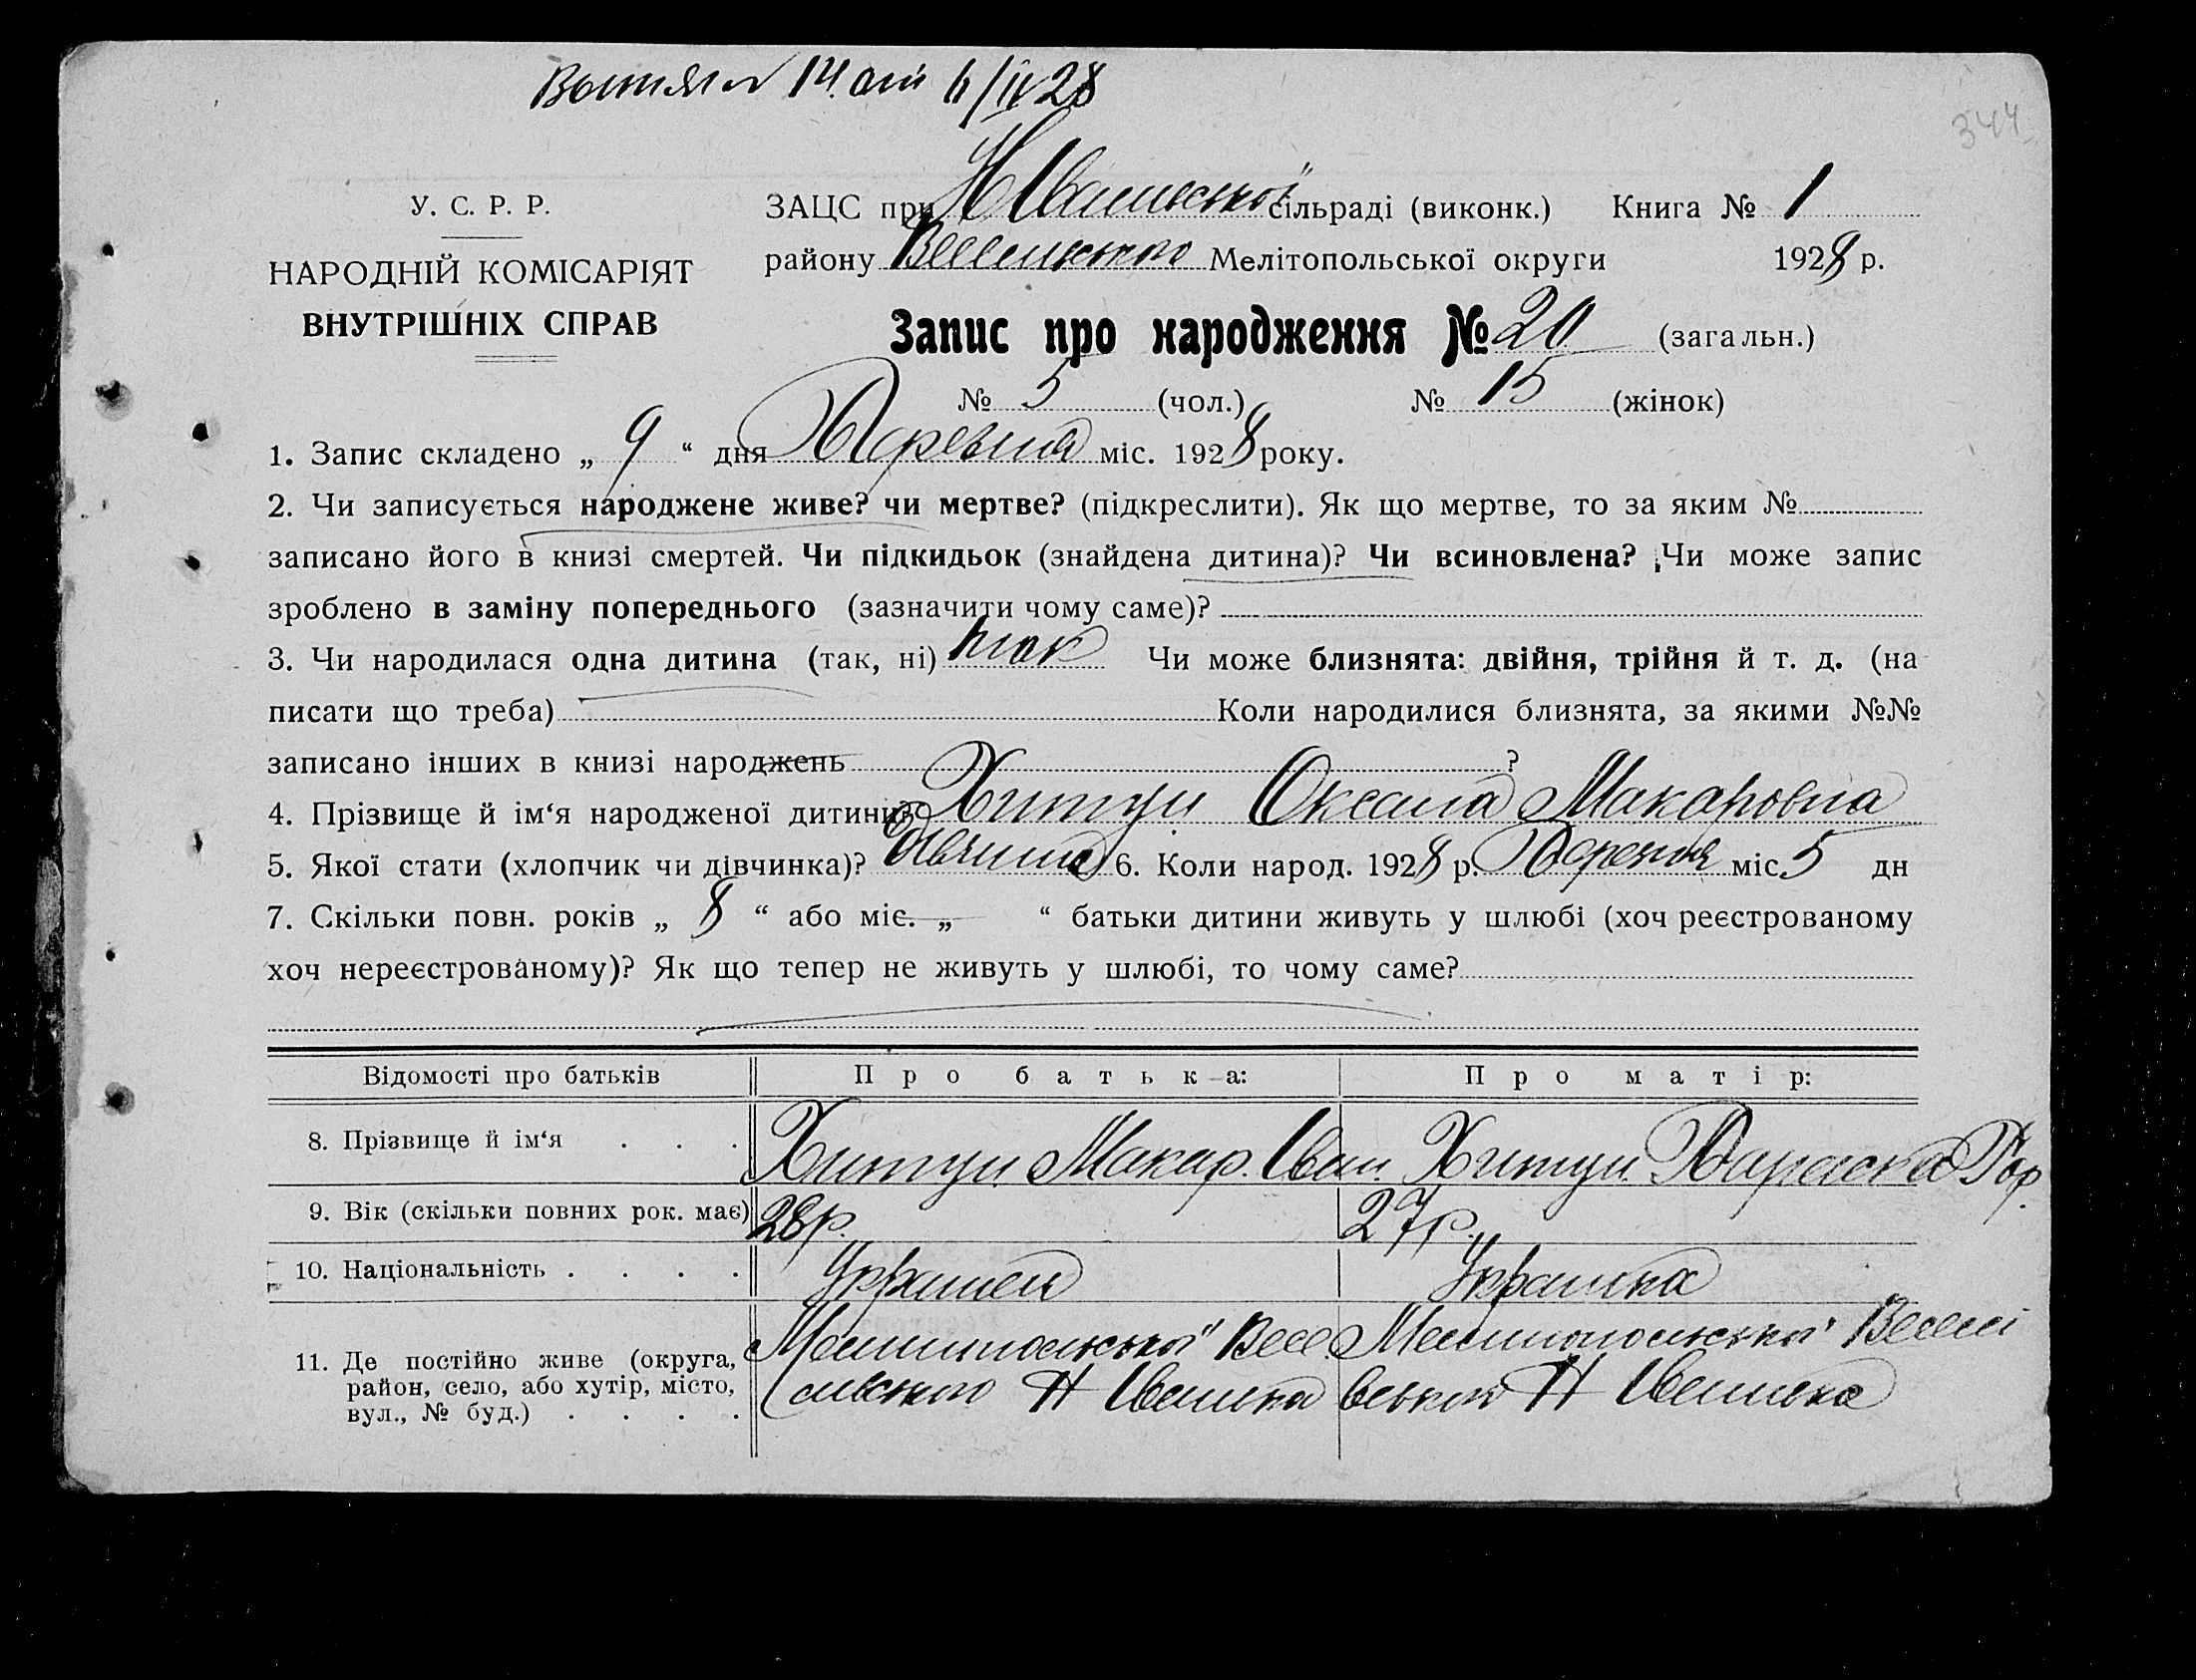 14. 6/IV 28
344
У. С. Р. Р.
НАРОДНІЙ КОМІСАРІЯТ
ВНУТРІШНІХ СПРАВ
ЗАЦС при сільраді (виконк.) Книга № 1
району Веселівсько Мелітопольської округи 1928 р.
Запис про народження № 20 (загальн.)
№ 5 (чол.) № 15 (жінок)
1. Запис складено „ 9 “ дня міс. 1928 року.
2. Чи записується народжене живе? чи мертве? (підкреслити). Як що мертве, то за яким №
записано його в книзі смертей. Чи підкидьок (знайдена дитина)? Чи всиновлена? Чи може запис
зроблено в заміну попереднього (зазначити чому саме)?
3. Чи народилася одна дитина (так, ні) так Чи може близнята: двійня, трійня й т. д. (на
писати що треба) Коли народилися близнята, за якими №№
записано інших в книзі народжень ?
4. Прізвище й ім‘я народженої дитини Хитун Оксана Макаровна
5. Якої стати (хлопчик чи дівчинка)? дівчина 6. Коли народ. 1928 р. міс. 5 дн
7. Скільки повн. років „ 8 “ або міс. „ “ батьки дитини живуть у шлюбі (хоч реєстрованому
хоч нереєстрованому)? Як що тепер не живуть у шлюбі, то чому саме?
Відомості про батьків Про батька: Про матір:
8. Прізвище й ім‘я . . . Хитун Макар. Іван. Хитун Параска
9. Вік (скільки повних рок. має) 28 р. 27 р.
10. Національність . . . . Українка
11. Де постійно живе (округа,
район, село, або хутір, місто,
вул., № буд.) . . . .
Мелітопольської Весе Мелітопольської Веселі
лівсько Н Іванівка вської Н Іванівка